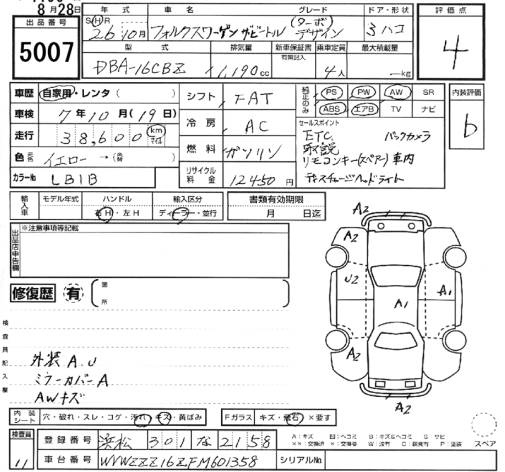 8月28日
出品番号
5007
年式 車名 グレード ドア・形状
S H R 26年10月 フォルクスワーゲン ザビートル (ターボ) デザイン 3 ハコ
評価点
4
型式 排気量 新車保証書 有無記入 乗車定員 最大積載量
DBA-16CBZ 1,190cc 4人 ―kg
車歴 自家用・レンタ( )
車検 7年10月(19日)
走行 38,600 km マイル
色 元色 イエロー→(色替 )
カラーNo LB1B
シフト FAT
冷房 AC
燃料 ガソリン
リサイクル料金 12450円
純正のみ PS PW AW SR
ABS エアB TV ナビ
内装評価
b
セールスポイント
ETC バックカメラ
取説
リモコンキー(スペアー)車内
ディスチャージヘッドライト
輸入車 モデル年式 ハンドル 輸入区分
右H・左H ディーラー・並行
書類有効期限
月 日迄
出品店申告欄
※注意事項等記載
修復歴 有 箇所
検査員記入欄
外装 A、U
ミラーカバーA
AWキズ
A2
A2
A2
U2
A1
A1
A2
A2
A2
内装シート 穴・破れ・スレ・コゲ・汚れ・キズ・黄ばみ
Fガラス キズ・飛石・×要す
スペア
検査員
11
登録番号 浜松 301 な 2158
車台番号 WVWZZZ16ZFM601358 シリアルNo
A:キズ U:ヘコミ B:キズ&ヘコミ S:サビ